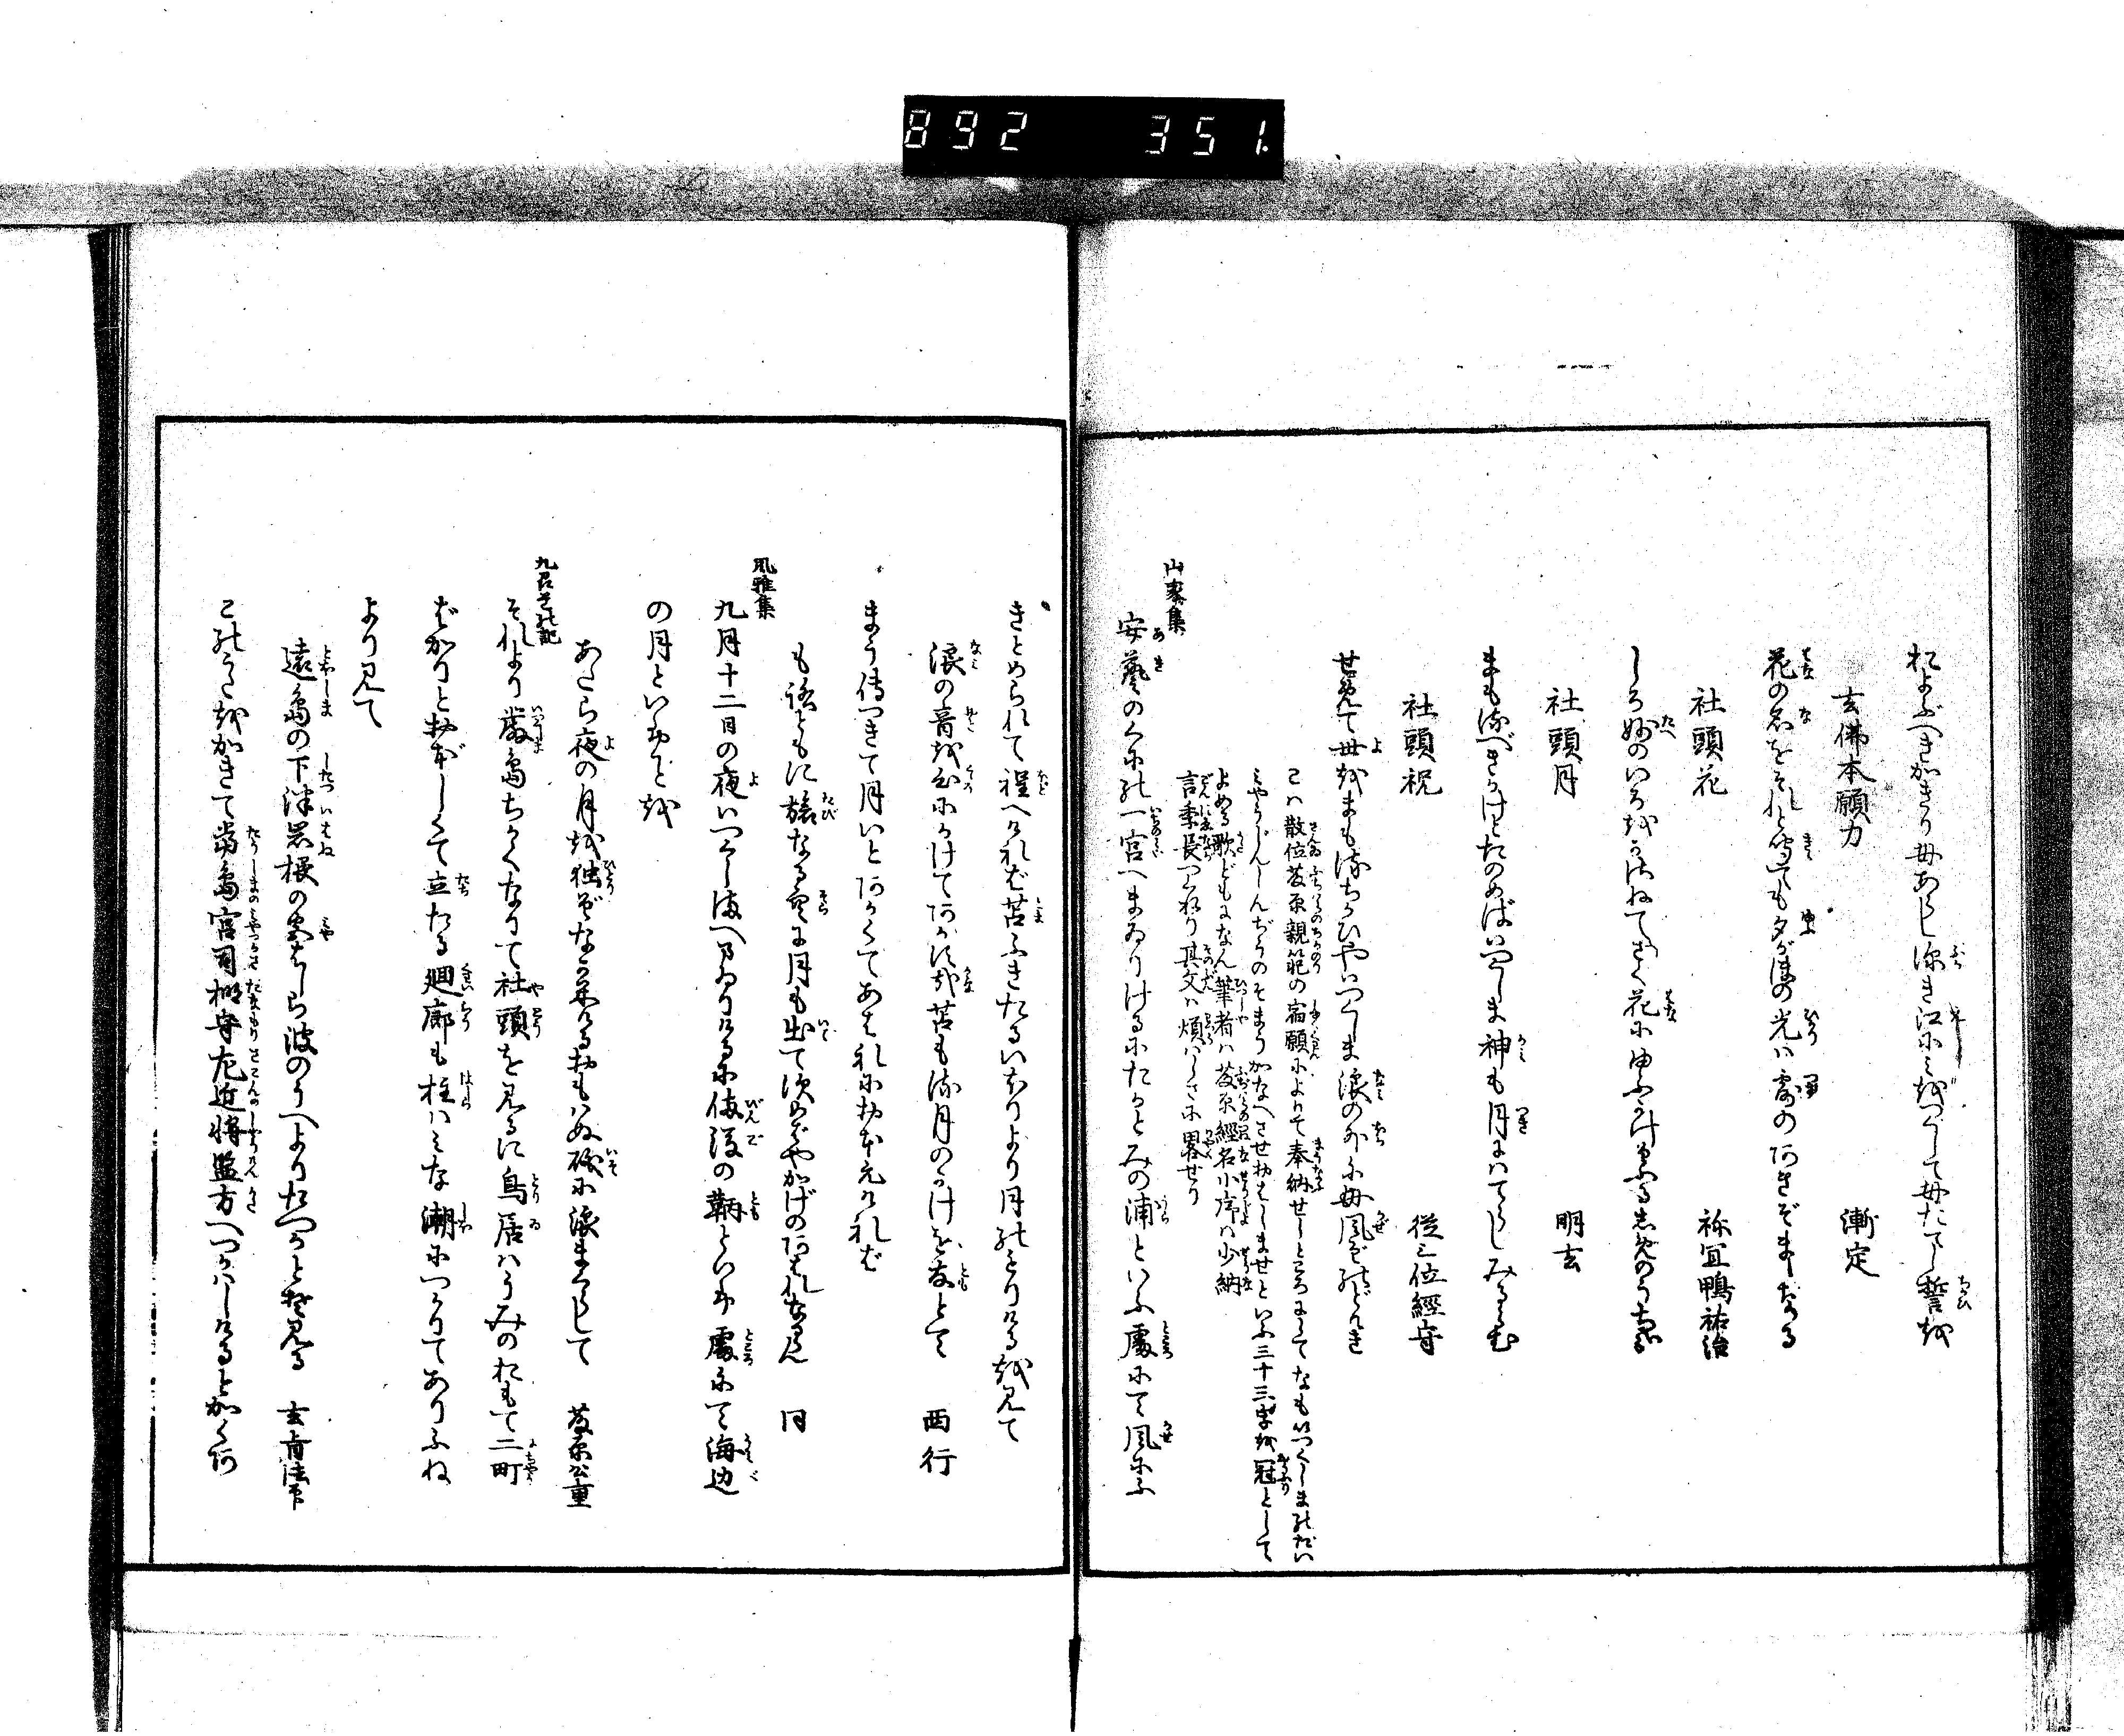 892 351
およぶべきかぎりもあらじ深き江にみをつくしてもたてし誓を
玄佛本願力 漸定
花の名をそれと
社頭花 祢宜鴨祐治
しろ妙のいろを
社頭月 明玄
まもるべきかげとたのめばいつくしま神も月にはてらしみるらむ
社頭祝 從三位經守
世をまもるちかひやいつくしま浪の外にも風ぞのどけき
こは散位藤原親範の宿願によりて奉納せしところにてなもいつくしまのだい
みやうじんしんぢうのそまうかなへさせおはしませといふ三十三字を冠として
よめる歌どもになん筆者は藤原經名小序は少納
言季長つくれり其文は煩はしさに畧せり
山家集
安藝のくにの一宮へまゐりけるにたかとみの浦といふ處にて風にふ
きとめられて程へければ苫ふきたるいほりより月のもりけるを見て
浪の音を心にかけてあかすかな苫もる月のかげを友とて 西行
まうでつきて月いとあかくてあはれにおぼえければ
もろともに旅なる空に月も出てすめばやかげのあはれなるらん 同
風雅集
九月十二日の夜いつくしまへまゐりけるに備後の鞆といふ處にて海辺
の月といふことを
あたら夜の月を独ぞながめつるおもはぬ磯に浪まくらして 藤原公重
九州道の記
それより嚴島ちかくなりて社頭を見るに鳥居はうみのおもて二町
ばかりとおぼしくて立たる廻廊も柱はみな潮につかりてありふね
より見て
遠島の下津岩根の宮ばしら波のうへよりたつかとぞ見る 玄旨法印
このうたをかきて當島宮司棚守左近將監方へつかはしけるとかくあ